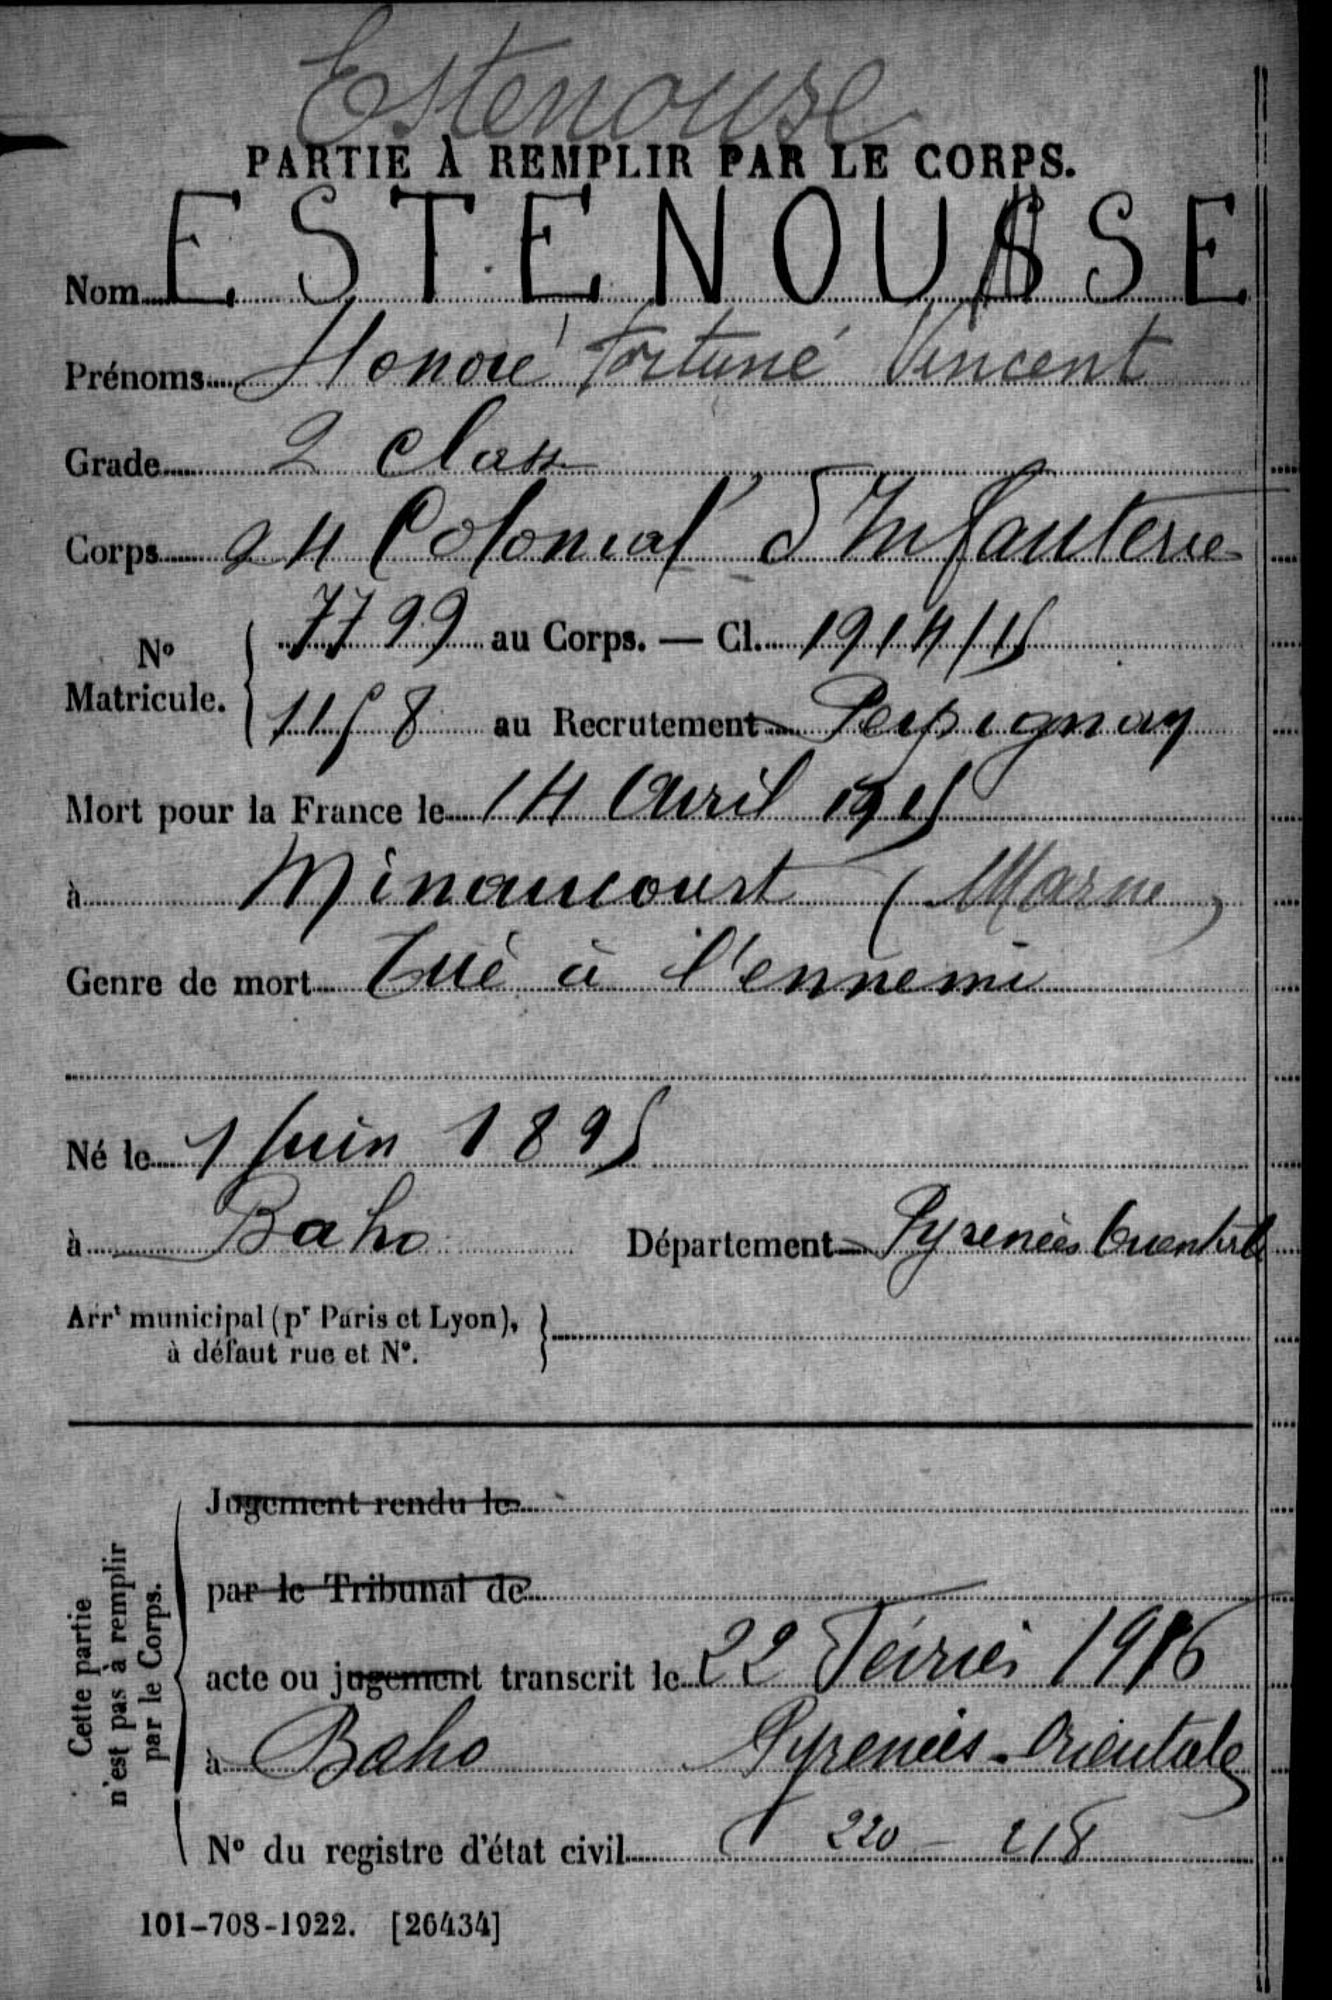 Estenouse
PARTIE À REMPLIR PAR LE CORPS.
Nom ESTENOUSSE
Prénoms Honoré Fortuné Vincent
Grade 2 Class
Corps 24 Colonial d'Infanterie
N° Matricule. 7799 au Corps. — Cl. 1914/15
1158 au Recrutement Perpignan
Mort pour la France le 14 Avril 1915
à Minaucourt (Marne)
Genre de mort Tué à l'ennemi
Né le 1 Juin 1895
à Baho Département Pyrenées Orientales
Arrt municipal (pr Paris et Lyon),
à défaut rue et N°.
Cette partie
n'est pas à remplir
par le Corps.
Jugement rendu le
par le Tribunal de
acte ou jugement transcrit le 22 Février 1916
à Baho Pyrenées-Orientales
N° du registre d'état civil 220 - 218
101-708-1922. [26434]